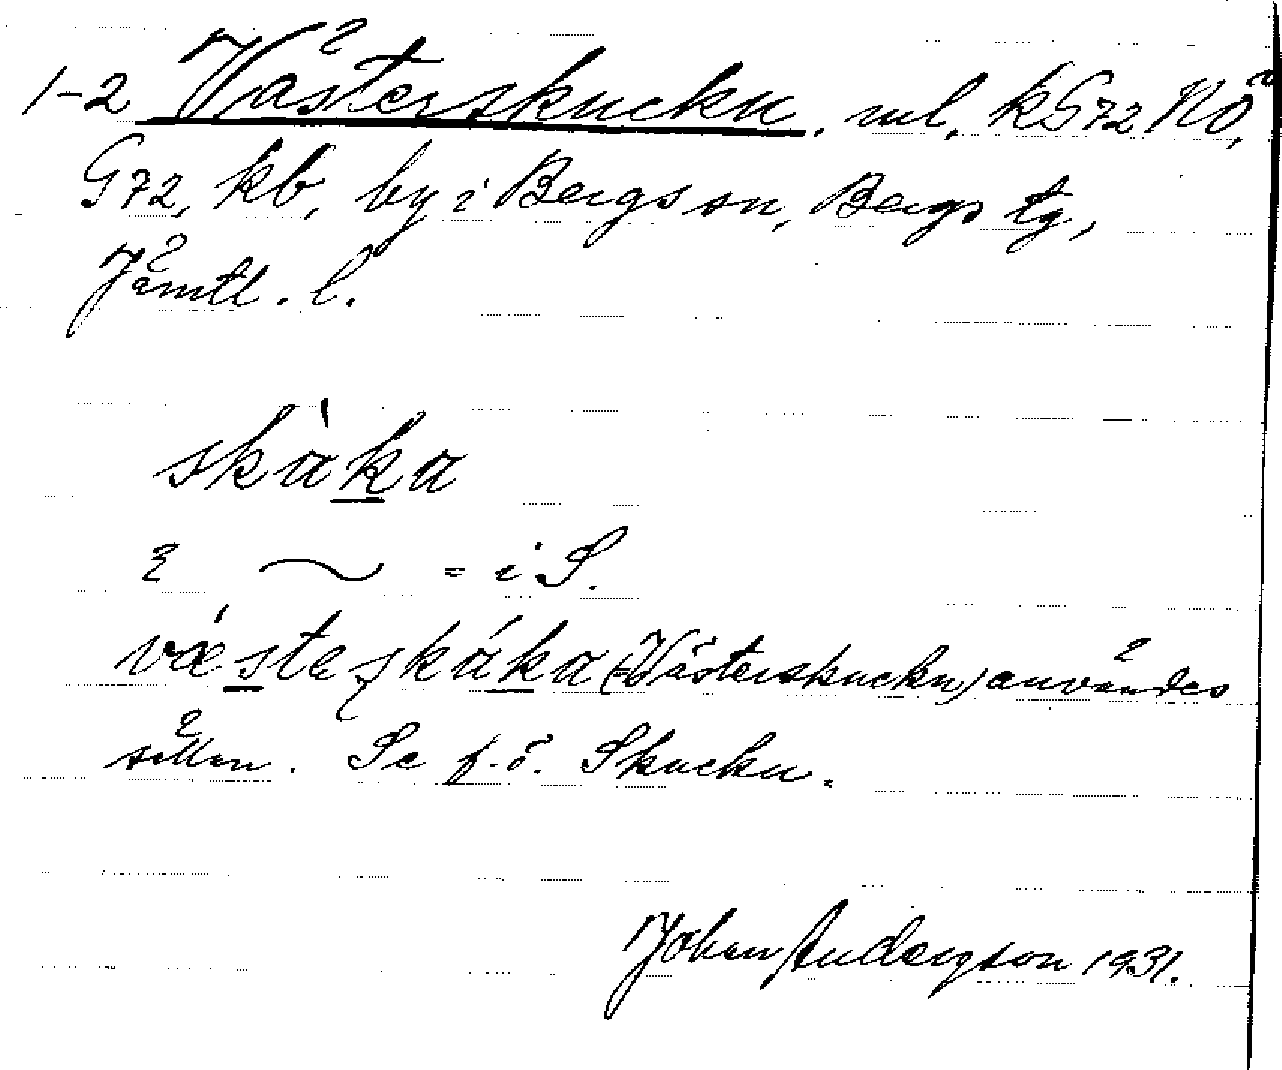 1-2 Västerskucku. ml, kG72 NÖ,
G72, kb, by i Bergs sn, Bergs tg,
Jämtl. l.
skàka
i ~ = i S.
væ̀steskáka (=Västerskucku) användes
sällan. Se f.ö. Skucku.
Johan Andersson 1931.